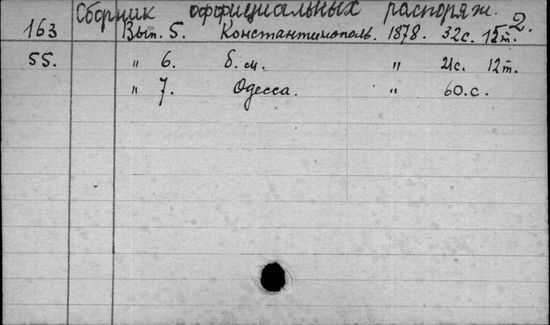 Сборник оффициальных распоряж. 2.
163 Вып. 5. Константинополь. 1878. 32с. 12т.
55. " 6. б.м. " 21с. 12т.
" 7. Одесса. " 60.с.